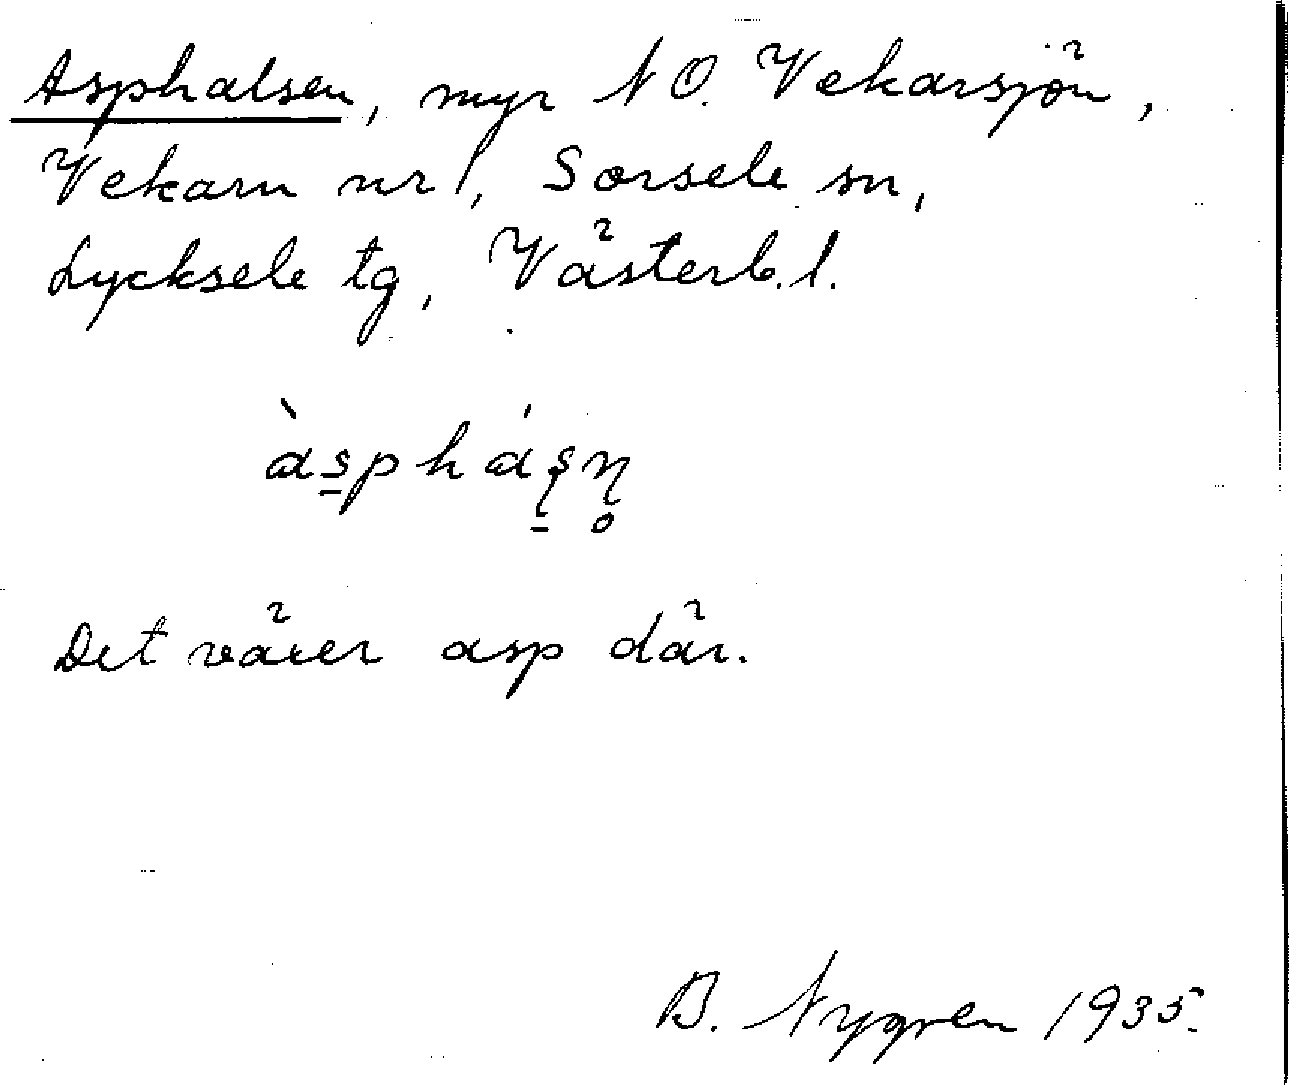 Asphalsen, myr N O. Vekarsjön,
Vekarn nr 1, Sorsele sn,
Lycksele tg, Västerb. l.
às̱pháṣ̱ṇ̥
Det växer asp där.
B. Nygren 1935.